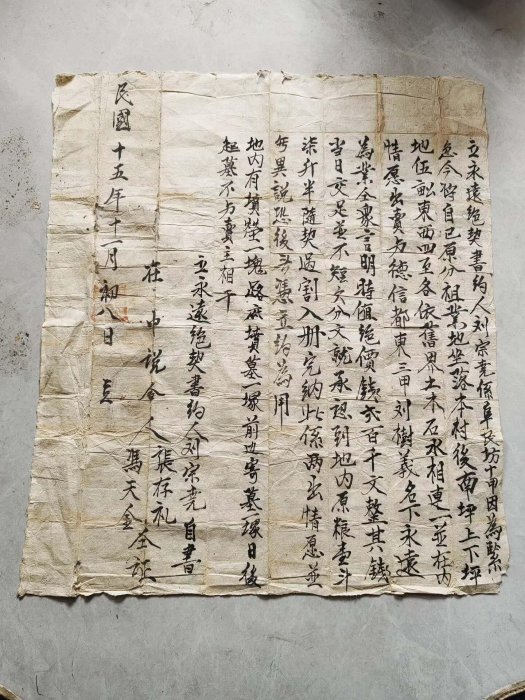 立永遠絕契書約人刘宗尭係阜民坊十甲因為緊
急今將自已原分祖業地坐落本村後南坪上下坪
地伍畝東西四至各依舊界土木石水相連一並在內
情愿出賣与德信都東三甲刘樹義名下永遠
為業仝衆言明時值絕價錢弍百千文整其錢
當日交足並不短欠分文就承認到地內原粮壹斗
柒升半隨契過割入册完納此係兩出情愿並
無異說恐後無憑立約為用
地內有墳塋一塊路底墳墓一塚前边寄墓塚日後
起墓不与賣主相干
立永遠絕契書約人刘宗尭自書
在中說合人張存礼
馮天金仝証
民國十五年十一月初八日立